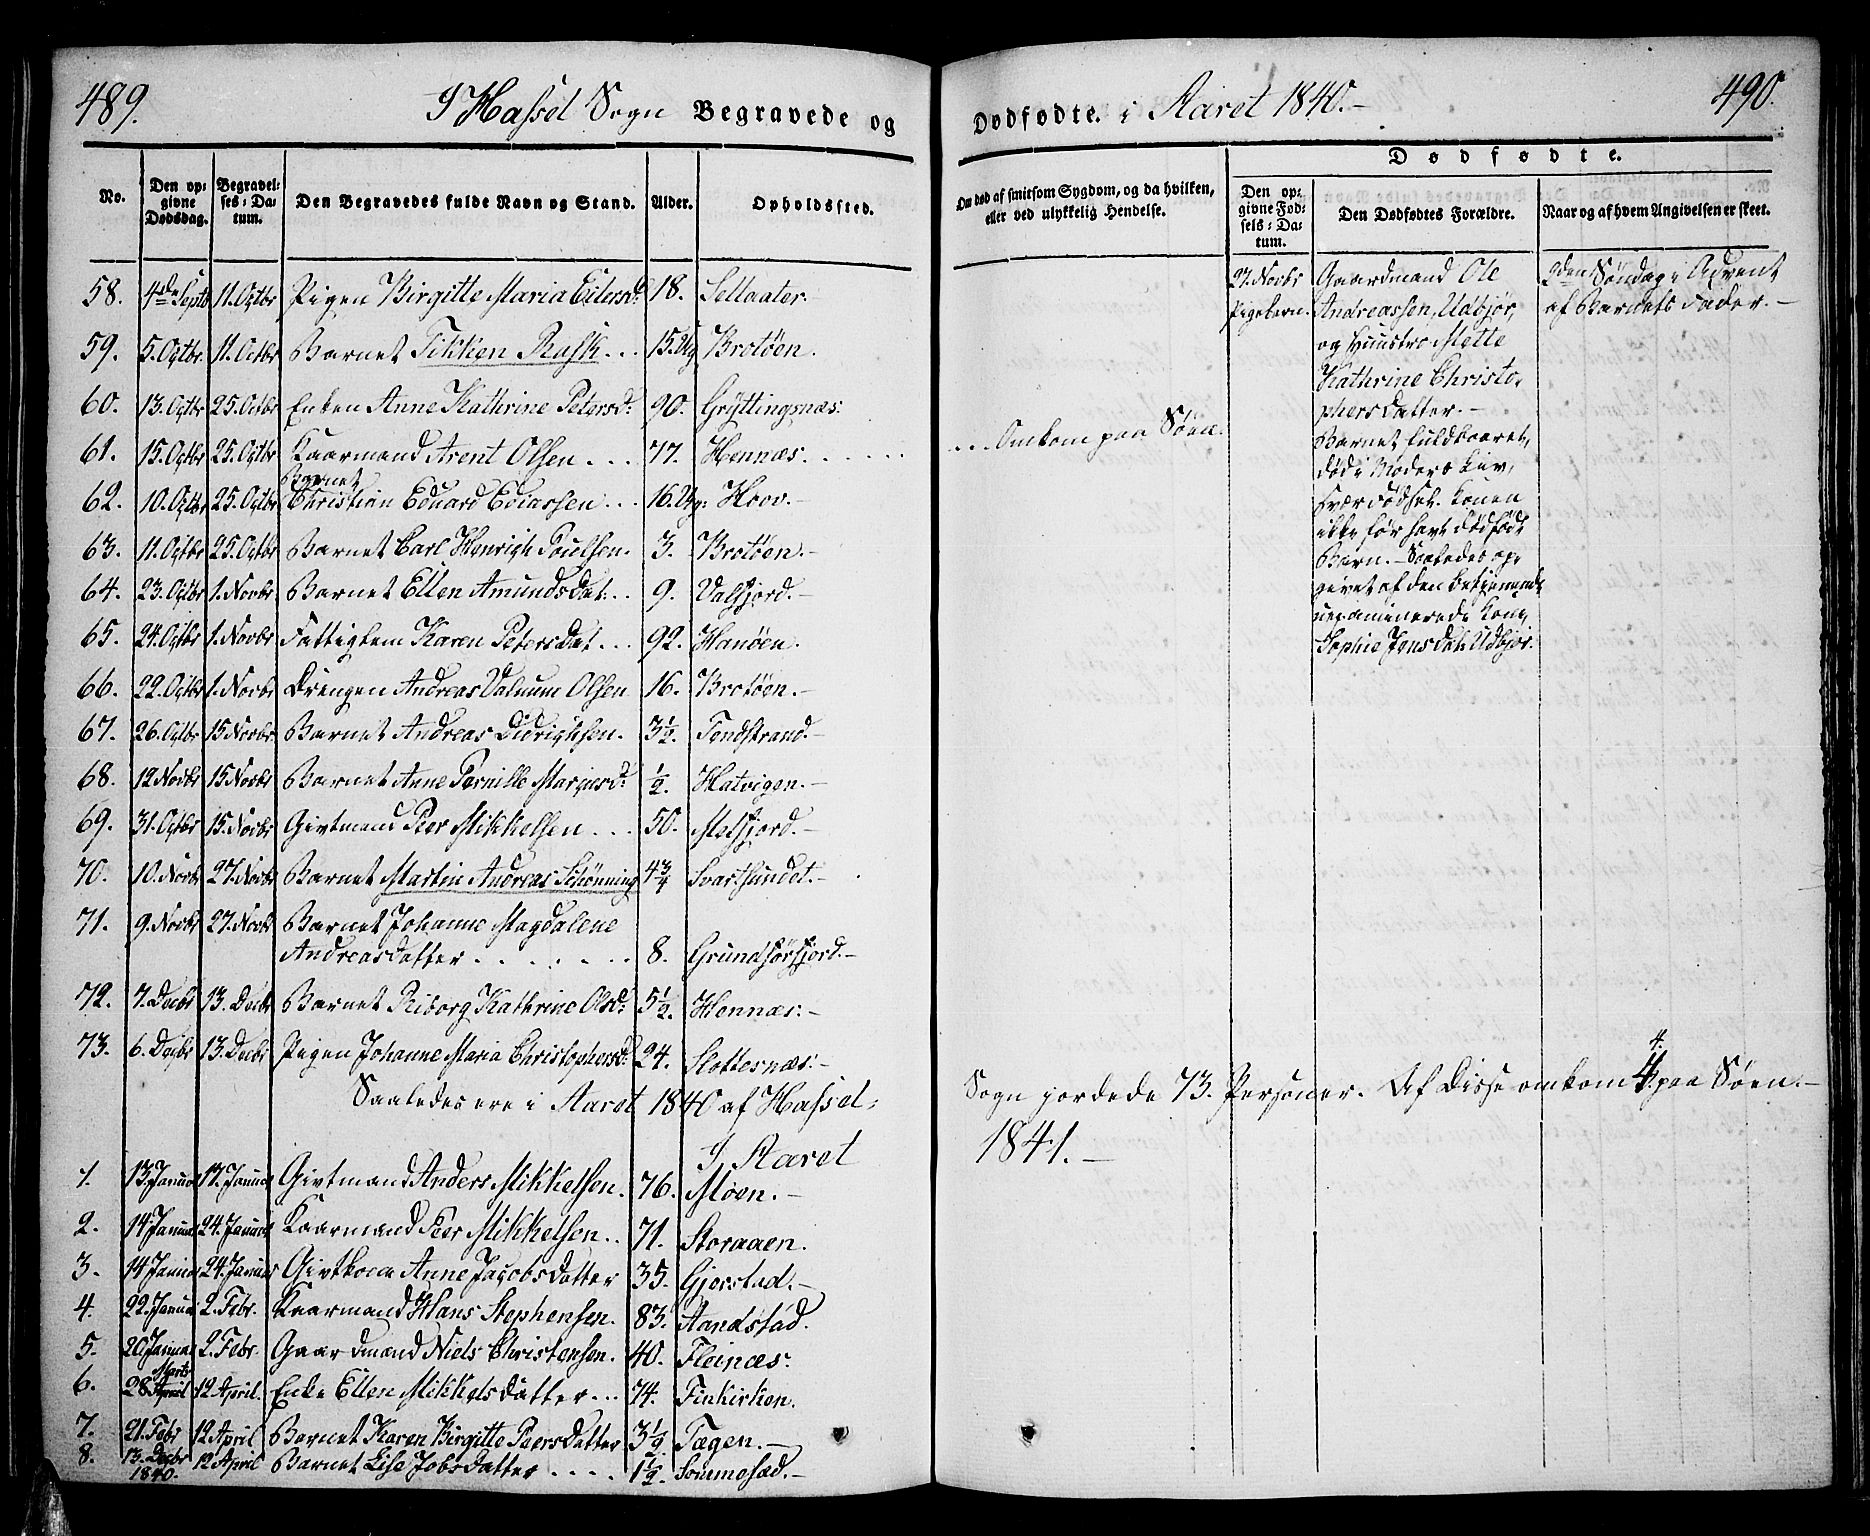 489.
I Hassel Sogn Begravede og
Dødfødte. i Aaret 1840.-
490.
No.
Den opgivne Dødsdag.
Begravelses-Datum.
Den Begravedes fulde Navn og Stand.
Alder.
Opholdssted.
Om død af smitsom Sygdom, og da hvilken,
eller ved ulykkelig Hendelse.
Dødfødte.
Den opgivne Fødsels-Datum.
Den Dødfødtes Forældre.
Naar og af hvem Angivelsen er skeet.
58. 4de Septb 11. Octbr Pigen Birgitte Maria Eilersd: 18. Sellaater.
59. 5. Octbr. 11. Octbr Barnet Tikken Rask... 15. Ug Brotøen.
60. 13. Octbr 25. Octbr Enken Anne Kathrine Petersd: 90. Gryttingsnæs:
61. 15. Octbr 25. Octbr Kaarmand Arent Olsen... 77. Hennæs. ... Omkom paa Søen.
62. 10. Octbr 25. Octbr Barnet Christian Eduard Ediassen... 16. Ug: Hoov.
63. 11. Octbr 25. Octbr Barnet Carl Henrigh Poulsen. 3. Brotøen.-
64. 23. Octbr 1. Novbr Barnet Ellen Amundsdat:.. 9. Valfjord.-
65. 24. Octbr 1. Novbr Fattiglem Karen Petersdat... 92. Hanøen.
66. 22. Octbr 1. Novbr Drengen Andreas Olsen 16. Brotøen.-
67. 26. Octbr 15 Novbr Barnet Andreas Didrichsen. 3½. Tendstrand.-
68. 12 Novbr 15 Novbr Barnet Anne Pernille Mariusd: ½. Hatvigen.-
69. 31. Octbr 15. Novbr Givtmand Peer Mikkelsen... 50. Melfjord.-
70. 10. Novbr 27. Novbr Barnet Martin Andreas Schønning 4¾ Svartsundet.-
71. 9. Novbr 27. Novbr Barnet Johanne Magdalene
Andreasdatter....... 8. Grundførfjord.-
72. 7. Decbr 13. Decbr Barnet Riborg Kathrine Olsd: 5½. Hennæs:-
73. 6. Decbr 13. Decbr Pigen Johanne Maria Christophersd: 24. Slottesnæs:-
27. Novbr
Pigebarn.
Gaardmand Ole
Andreassen, Udbjør,
og Huustro Mette
Kathrine Christo-
phersdatter.-
Barnet fuldbaaret,
død i Moders Liv,
svær Fødsel. Konen
ikke før havt dødfødt
Barn.- Saaledes op-
givet af den betjenende
uexaminerede Kone
Sophie Jensdat: Udbjør.
2den Søndag i Advent
af Barnets Fader.-
Saaledes ere i Aaret 1840 af Hassel:
Sogn jordede 73. Personer. Af disse omkom 4. 4. paa Søen.-
I Aaret
1841.-
1. 13. Januar 17. Januar Givtmand Anders Mikkelsen. 76. Møen.-
2. 14 Januar 24. Januar Kaarmand Peer Mikkelsen.. 71. Storaaen.
3. 14 Januar 24. Januar Givtkone Anne Jacobsdatter 35. Gjerstad.-
4. 22. Januar 2. Febr. Kaarmand Hans Stephensen. 83. Aandstad.
5. 20 Januar 2. Febr. Gaardmand Niels Christensen. 40. Fleinæs:
6. 28 April Marts 12 April. Enke Ellen Mikkelsdatter... 74. Finkirken.
7. 21. Febr 12 April Barnet Karen Birgitte Peersdatter 3½. Tægen.-
8. 13. Decbr 1840. 12 April Barnet Lise Jobsdatter.... 1½. Sommesæd.-